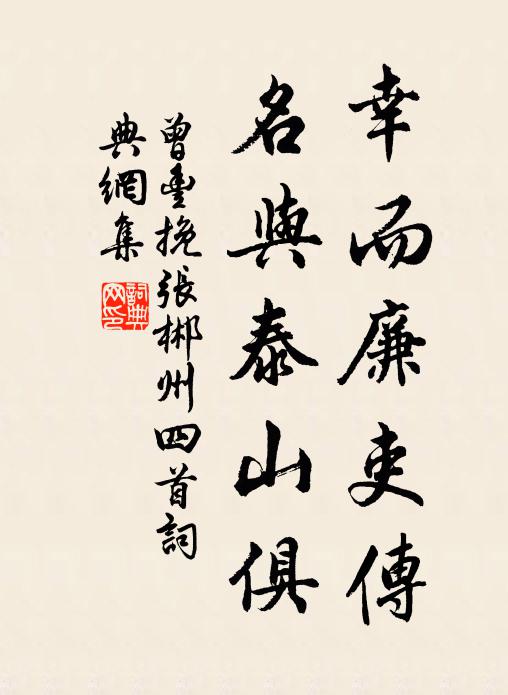 幸而廉吏傳
名與泰山俱
曾豐挽張郴州四首詞
典網集
詞典網印